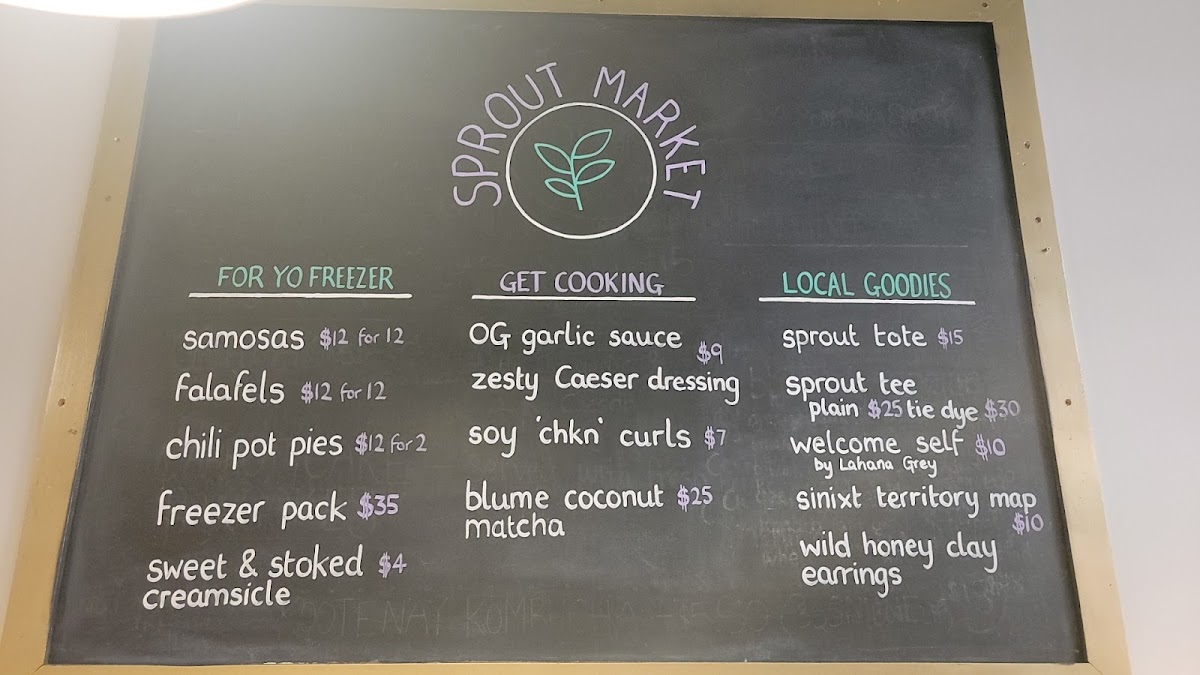 SPROUT MARKET
FOR YO FREEZER
samosas $12 for 12
falafels $12 for 12
chili pot pies $12 for 2
freezer pack $35
sweet & stoked $4
creamsicle
GET COOKING
OG garlic sauce $9
zesty Caeser dressing
soy 'chkn' curls $7
blume coconut $25
matcha
LOCAL GOODIES
sprout tote $15
sprout tee
plain $25 tie dye $30
welcome self $10
by Lahana Grey
sinixt territory map
$10
wild honey clay
earrings